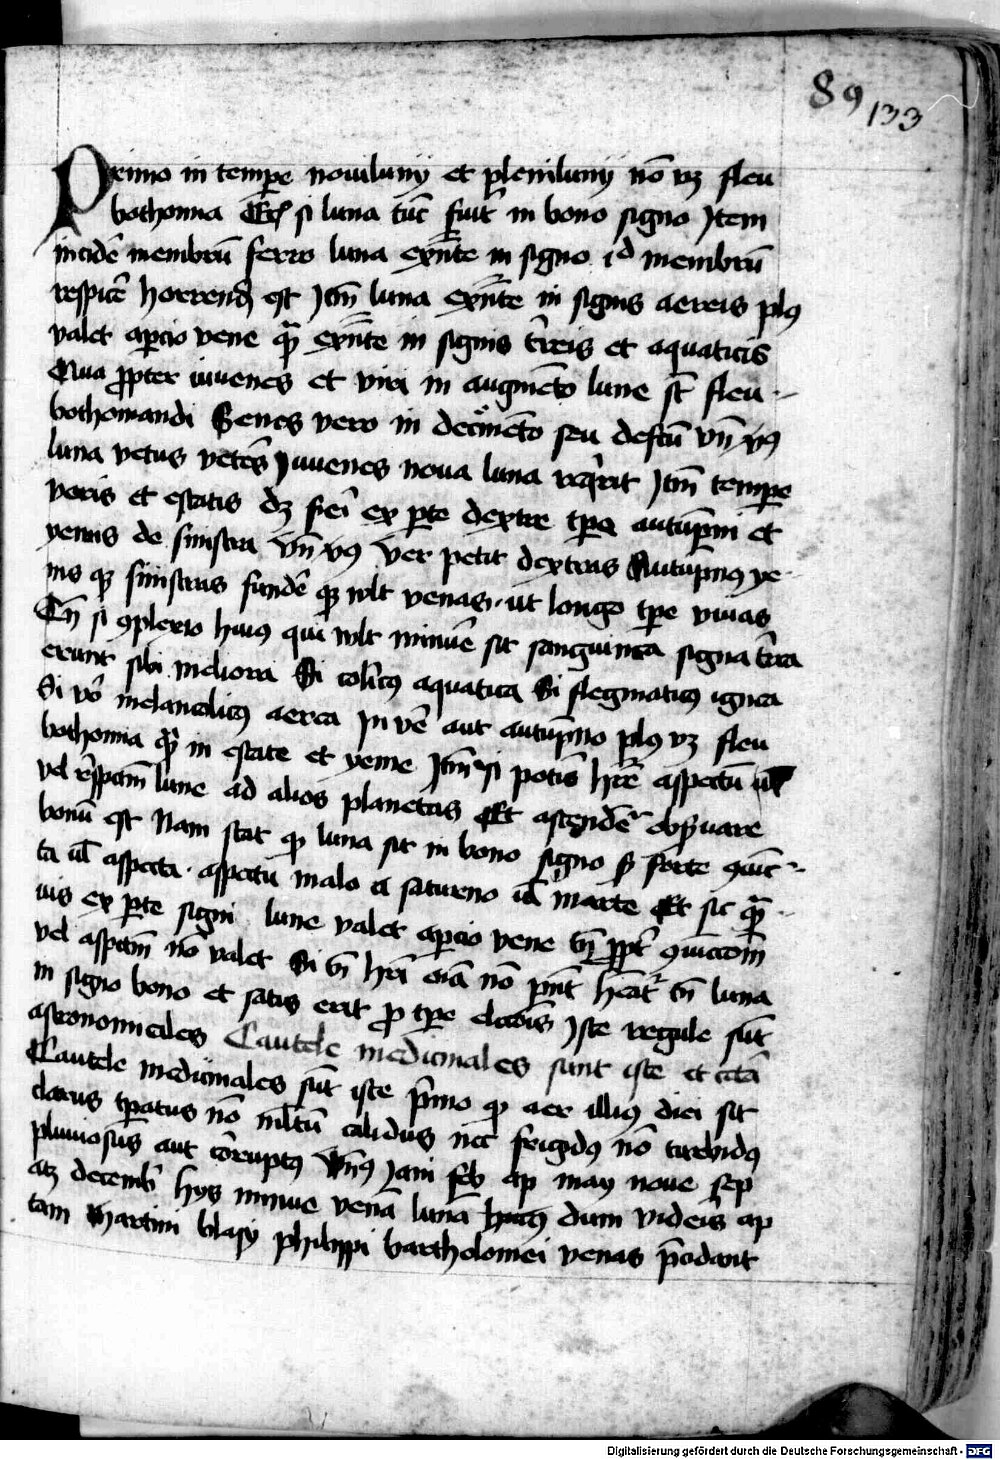 89 133
Primo in tempe novilunij et plenilunij nō vz fleu
bothomia Eci si luna tūc fuit in bono signo Item
incidē membrū ferro luna exn̄te in signo id membrū
respicē horrend est Itm̄ luna exn̄te in signis aereis plus
valet apcio vene qz exn̄te in signis treis et aquaticis
Qua ppter iuvenes et viri in augmēto lune st fleu
bothomandi Senes vero in decmēto seu defctū vn̄ vsus
luna vetus vetēs Iuvenes nova luna reqrit Itm̄ tempe
veris et estatis dz fieri ex pte dextre tpe autūpni et
yemis de sinistra vn̄ vsus Ver petit dextras Autūpnus ye
ms qz sinistras fundē qz wlt venas ut longo tpe vivas
Tn̄ si 9plexio huius qui wlt minuē sit sanguinea signa trea
erunt sibi meliora Si colīcus aquatica Si flegmaticus ignea
Si vo melancolicus aerea In vē aut autūpno plus vz fleu
bothomia qz in estate et yeme Itm̄ si potis hrē aspectū
vel respectm̄ lune ad alios planetas Et ascendē obseruare
bonū est Nam stat qz luna sit in bono signo sz forte 9iūc
ta ul aspecta aspectu malo a satureno ul marte Et sic qz
vis ex pte signi lune valet apcio vene tn̄ ppt 9iūctiom̄
vel aspectm̄ nō valet Si tn̄ hrī oīa nō pn̄t hēat tn̄ luna
in signo bono et satis erit p tpe eleccōis Iste regule sūt
astronomicales Cautele medicinales sunt iste et
Cautele medicinales sūt iste pīmo qz aer illius diei sit
clarus tpatus nō mltū calidus nec frigidus nō turbidus
pluviosus aut corruptus Vsus Iani feb ap may nove sep
atz decemb hys minue venā lunā dum videis ap
tam Martini blasy philippi bartholomei venas pcidant
Digitalisierung gefördert durch die Deutsche Forschungsgemeinschaft - DFG